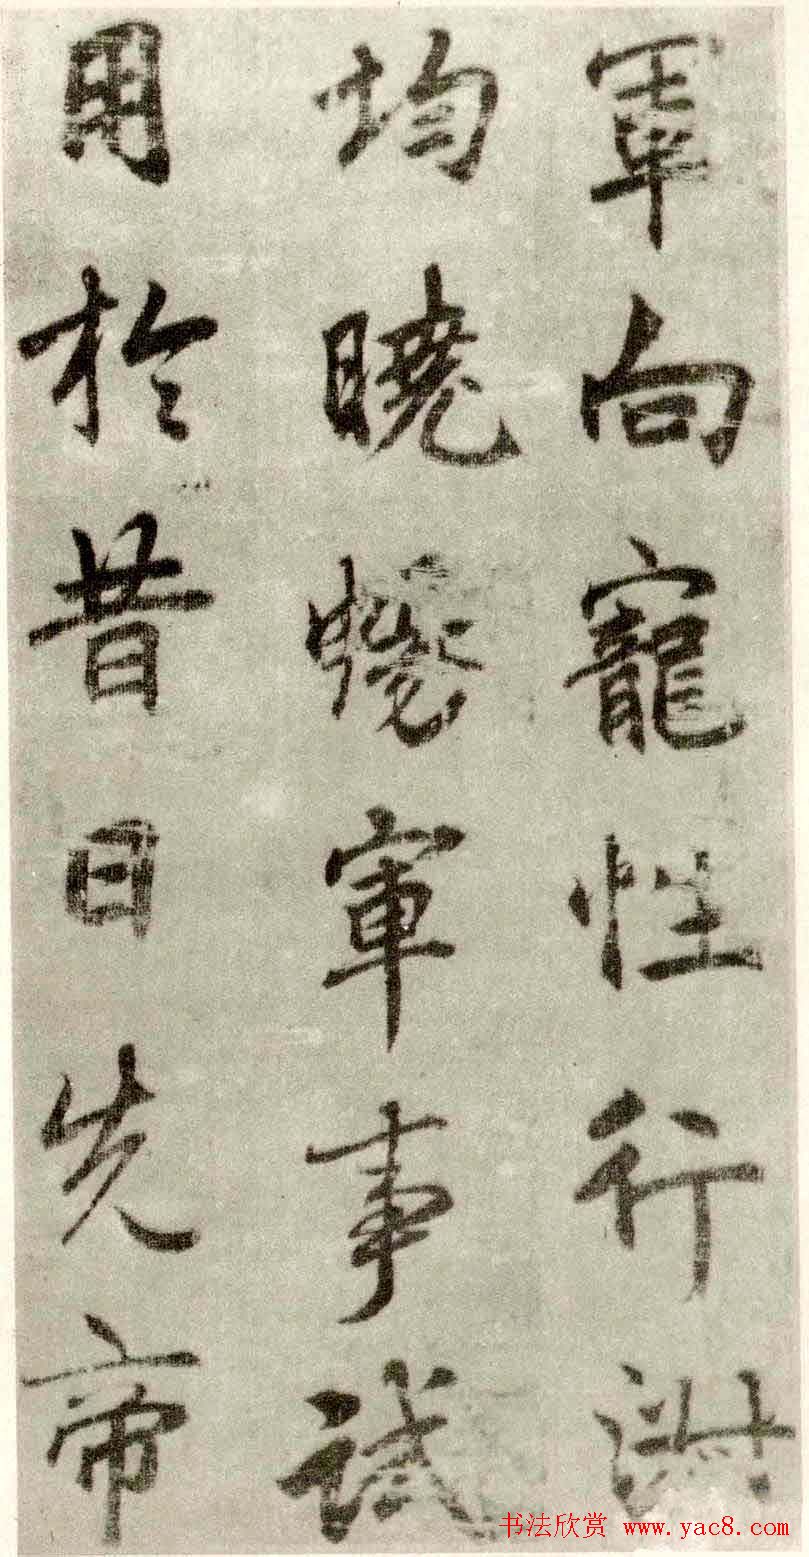 軍向寵性行淑
均曉暢軍事試
用於昔日先帝
书法欣赏 www.yac8.com